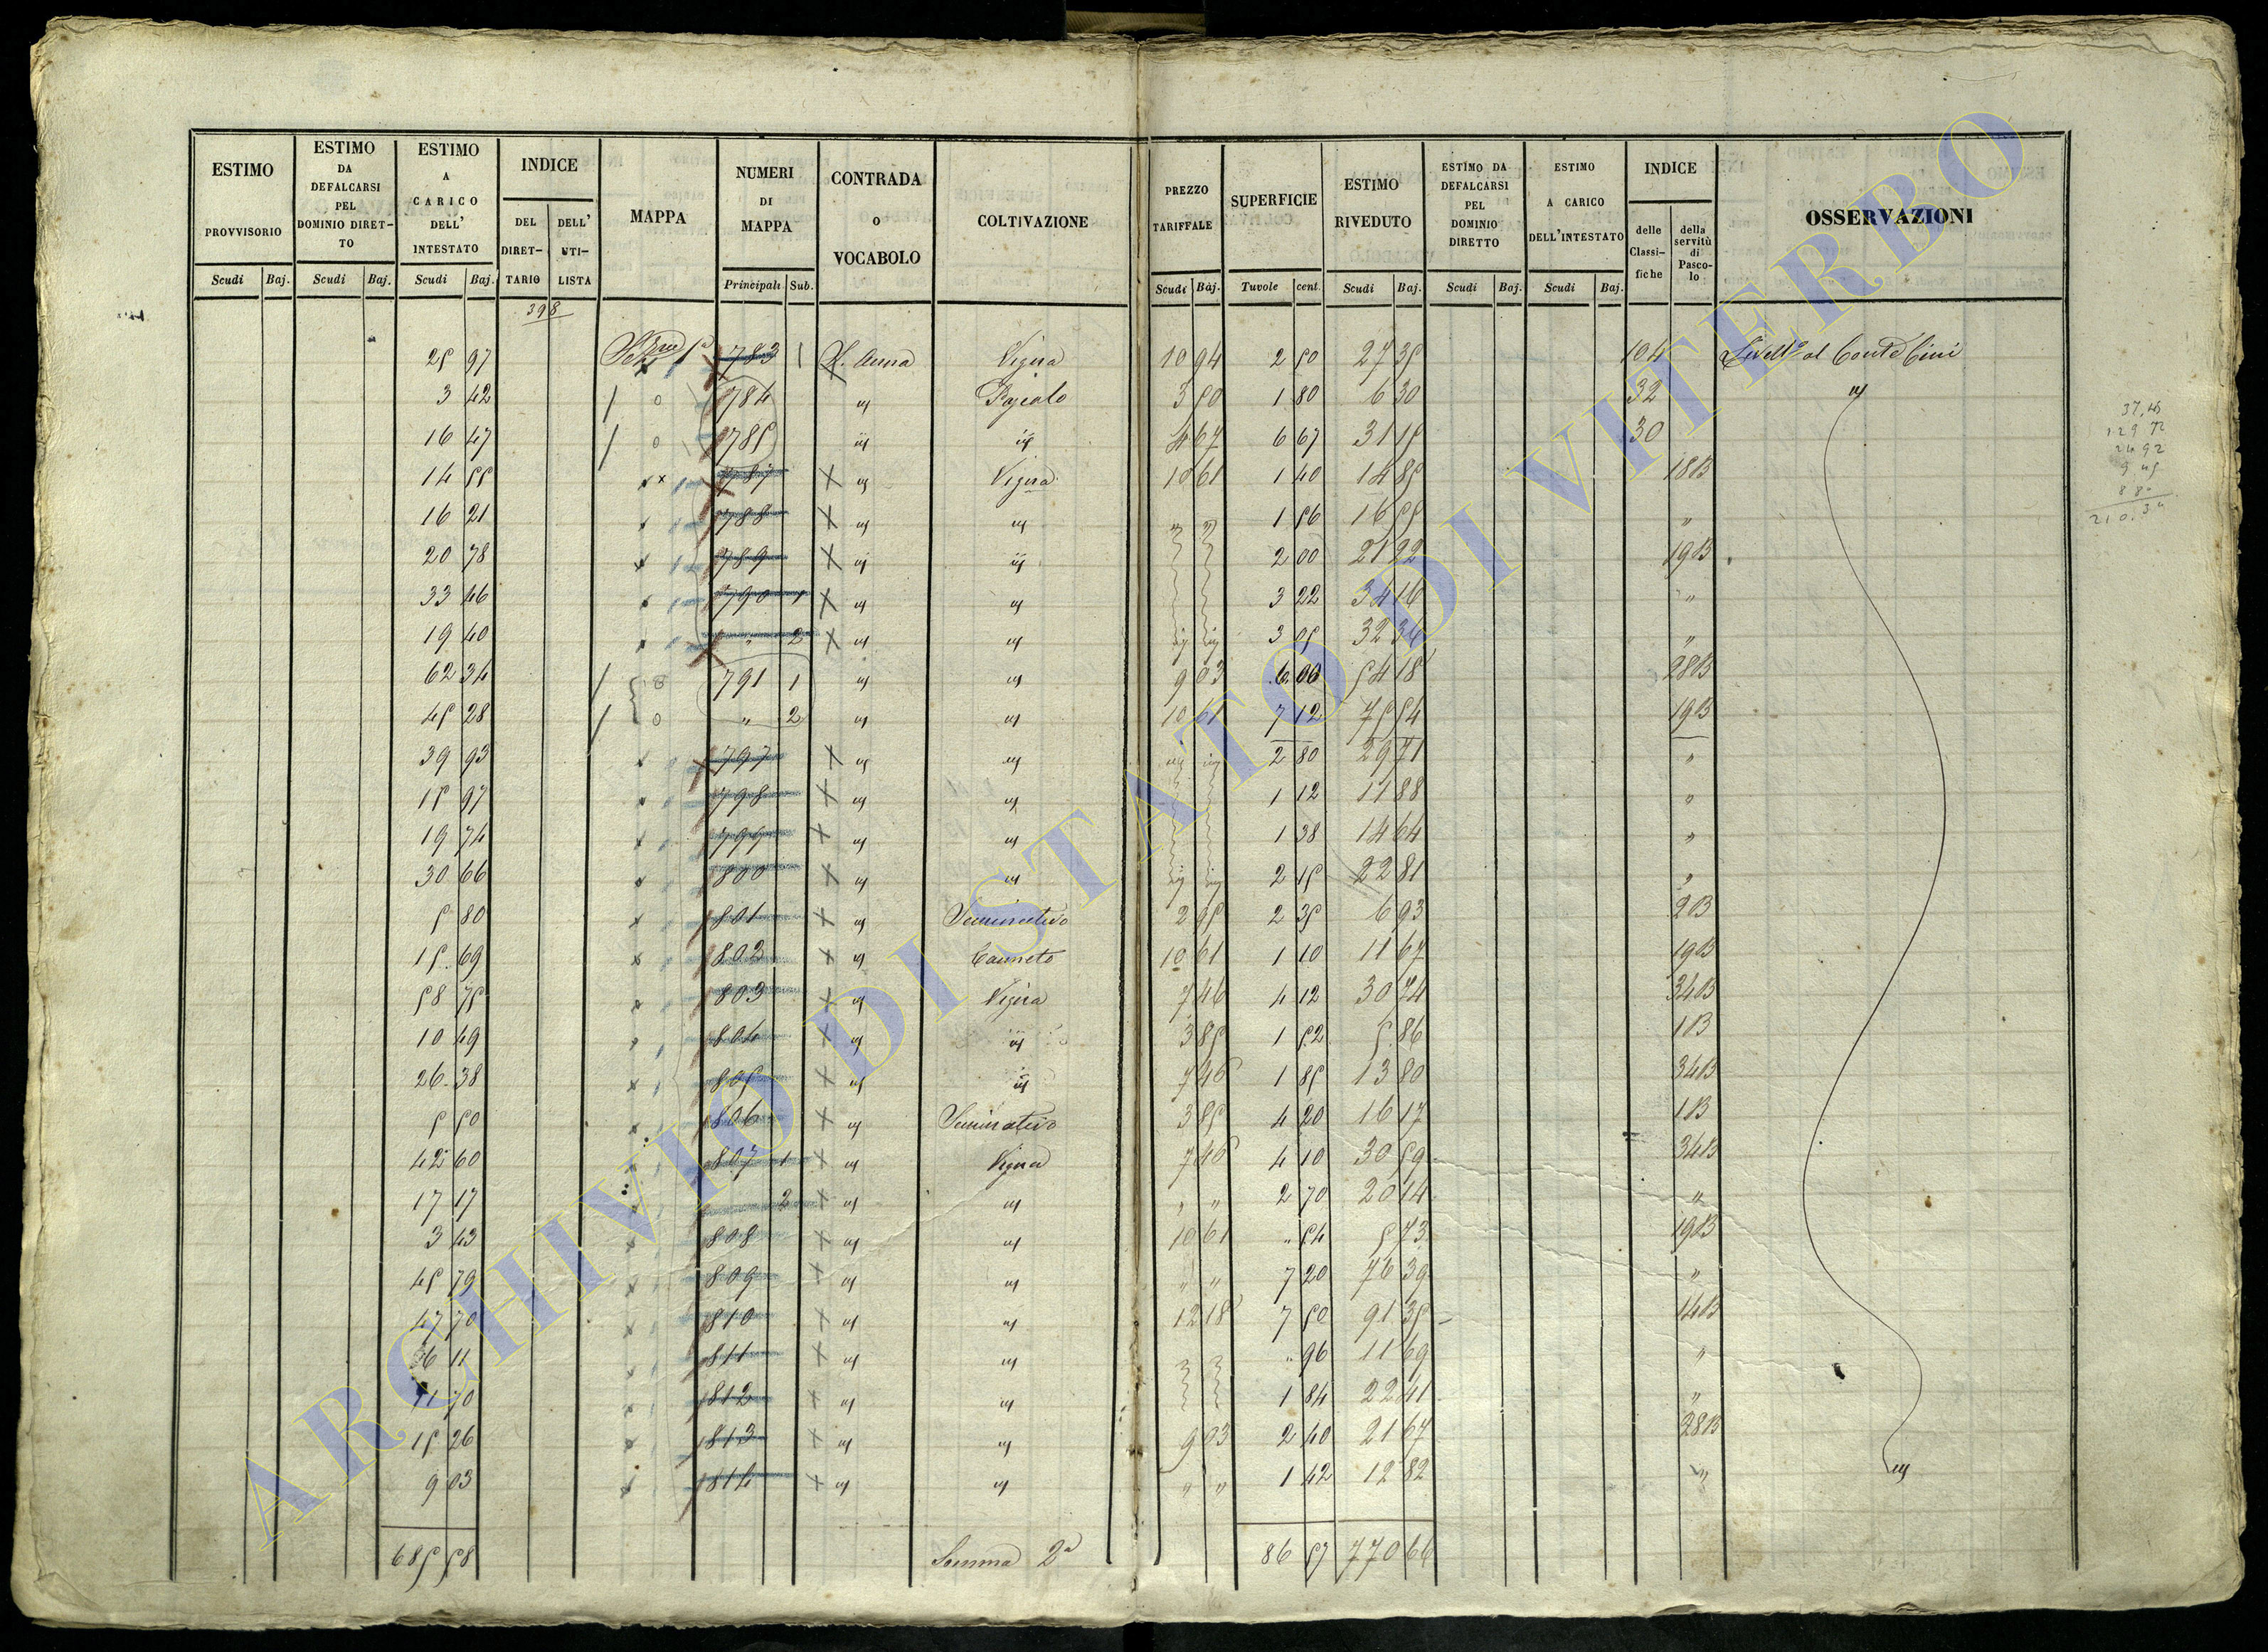 ESTIMO PROVVISORIO Scudi Baj. | ESTIMO DA DEFALCARSI PEL DOMINIO DIRET-TO Scudi Baj. | ESTIMO A CARICO DELL' INTESTATO Scudi Baj. | INDICE DEL DIRET-TARIO DELL' UTI-LISTA | MAPPA | NUMERI DI MAPPA Principali Sub. | CONTRADA o VOCABOLO | COLTIVAZIONE | PREZZO TARIFFALE Scudi Baj. | SUPERFICIE Tavole cent. | ESTIMO RIVEDUTO Scudi Baj. | ESTIMO DA DEFALCARSI PEL DOMINIO DIRETTO Scudi Baj. | ESTIMO A CARICO DELL'INTESTATO Scudi Baj. | INDICE delle Classi-fiche della servitù di Pasco-lo | OSSERVAZIONI
398
25 97 783 1 S. Anna Vigna 10 94 2 50 27 35 104 Livello al Conte Cini
3 42 784 " 3 50 1 80 6 30 32 "
16 47 785 " " 4 67 6 67 31 15 30
14 55 787 " Vigna 10 61 1 40 14 85 18B
16 21 788 " " " " 1 56 16 55 "
20 78 789 " " 2 00 21 22 19B
33 46 790 1 " " 3 22 34 16 "
19 40 " 2 " " " " 3 05 32 34 "
62 34 791 1 " " 9 03 6 00 54 18 28B
45 28 " 2 " " 10 61 7 12 75 54 19B
39 93 797 " " " " 2 80 29 71 "
15 97 798 " " 1 12 11 88 "
19 74 799 " " 1 38 14 64 "
30 66 800 " " " " 2 15 22 81 "
5 80 801 " Seminativo 2 95 2 35 6 93 2B
15 69 802 " Canneto 10 61 1 10 11 67 19B
58 75 803 " Vigna 7 46 4 12 30 74 34B
10 49 804 " " 3 85 1 52 5 86 1B
26 38 805 " " 7 46 1 85 13 80 34B
5 50 806 " Seminativo 3 85 4 20 16 17 1B
42 60 807 1 " Vigna 7 46 4 10 30 59 34B
17 17 2 " " " " 2 70 20 14 "
3 43 808 " " 10 61 " 54 5 73 19B
45 79 809 " " " " 7 20 76 39 "
47 70 810 " " 12 18 7 50 91 35 14B
6 11 811 " " " 96 11 69 "
11 70 812 " " 1 84 22 41 "
15 26 813 " " 9 03 2 40 21 67 28B
9 03 814 " " " " 1 42 12 82 " "
685 58 Somma 2ª 86 57 770 66
24 92
ARCHIVIO DI STATO DI VITERBO